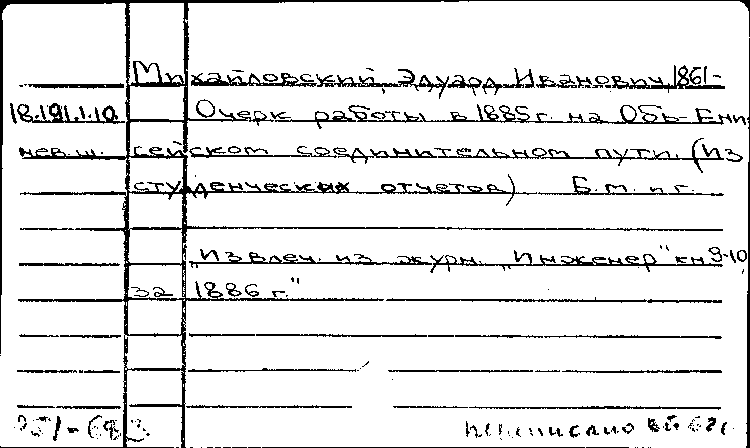 Михайловский, Эдуард Иванович, 1861-
18.191.1.10 Очерк работы в 1885 г. на Обь-Ени-
сейском соединительном пути. (Из
студенческих отчетов) Б.м. и г.
„Извлеч. из журн. „Инженер" кн 9-10
за 1886 г."